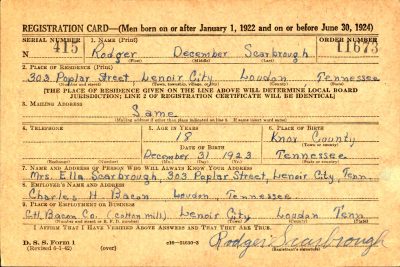 REGISTRATION CARD—(Men born on or after January 1, 1922 and on or before June 30, 1924)
SERIAL NUMBER 1. NAME (Print) ORDER NUMBER
N 415 Rodger December Scarbrough 11673
(First) (Middle) (Last)
2. PLACE OF RESIDENCE (Print)
303 Poplar Street, Lenoir City Loudon Tennessee
[THE PLACE OF RESIDENCE GIVEN ON THE LINE ABOVE WILL DETERMINE LOCAL BOARD
JURISDICTION; LINE 2 OF REGISTRATION CERTIFICATE WILL BE IDENTICAL]
3. MAILING ADDRESS
Same
(Mailing address if other than place indicated on line 2. If same insert word same)
4. TELEPHONE 5. AGE IN YEARS 6. PLACE OF BIRTH
18 Knox County
DATE OF BIRTH (Town or county)
December 31 1923 Tennessee
(Exchange) (Number) (Mo.) (Day) (Yr.) (State or country)
7. NAME AND ADDRESS OF PERSON WHO WILL ALWAYS KNOW YOUR ADDRESS
Mrs. Ella Scarbrough, 303 Poplar Street, Lenoir City Tenn.
8. EMPLOYER'S NAME AND ADDRESS
Charles H. Bacon Loudon, Tennessee
9. PLACE OF EMPLOYMENT OR BUSINESS
C.H. Bacon Co. (cotton mill). Lenoir City Loudon Tenn.
(Number and street or R. F. D. number) (Town) (County) (State)
I AFFIRM THAT I HAVE VERIFIED ABOVE ANSWERS AND THAT THEY ARE TRUE.
D. S. S. Form 1
(Revised 6-1-42) (over) Rodger Scarbrough
(Registrant's signature)